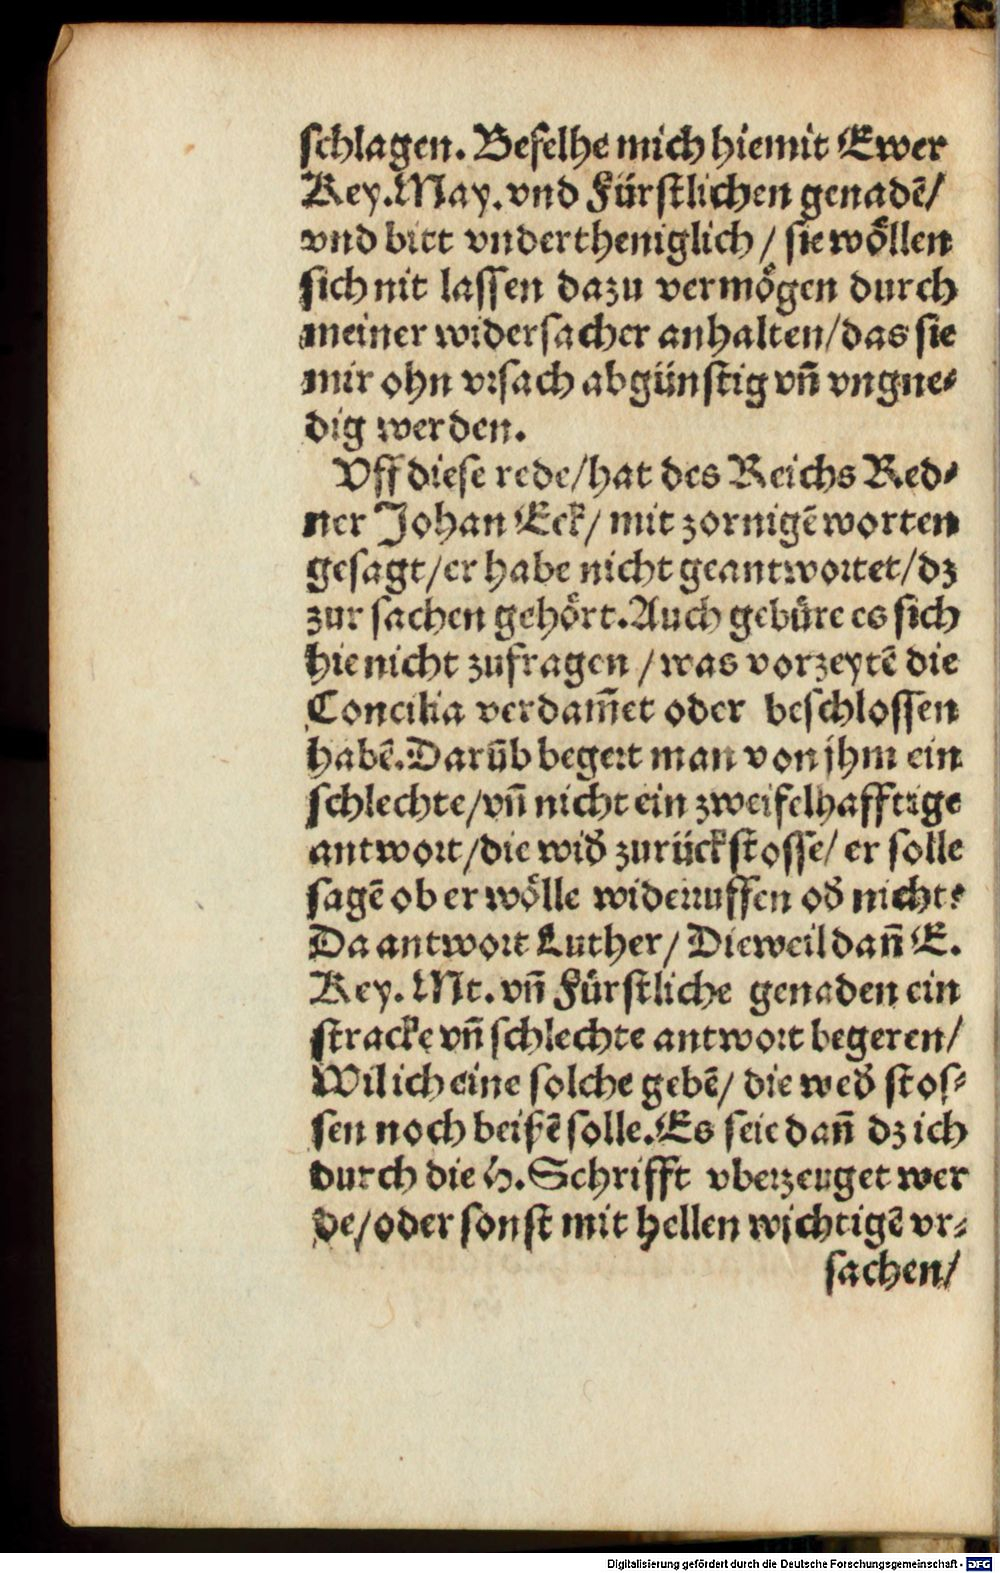 schlagen. Befelhe mich hiemit Ewer
Key. May. vnd Fürstlichen genadē/
vnd bitt vndertheniglich / sie wöllen
sich nit lassen dazu vermögen durch
meiner widersacher anhalten/das sie
mir ohn vrsach abgünstig vñ vngne⸗
dig werden.
Vff diese rede/hat des Reichs Red⸗
ner Johan Eck/ mit zornigē worten
gesagt/er habe nicht geantwortet/dz
zur sachen gehört. Auch gebüre es sich
hie nicht zufragen /was vorzeytē die
Concilia verdam̄et oder beschlossen
habē. Darüb begert man von jhm ein
schlechte/vñ nicht ein zweifelhafftige
antwort/die wid̕ zurück stosse/ er solle
sagē ob er wölle widerruffen od̕ nicht⸗
Da antwort Luther/ Dieweil dañ E.
Key. Mt. vñ Fürstliche genaden ein
stracke vñ schlechte antwort begeren/
Wil ich eine solche gebē/ die wed̕ stos⸗
sen noch beißē solle. Es seie dañ dz ich
durch die H. Schrifft vberzeuget wer
de/oder sonst mit hellen wichtigē vr⸗
sachen/
Digitalisierung gefördert durch die Deutsche Forschungsgemeinschaft - DFG